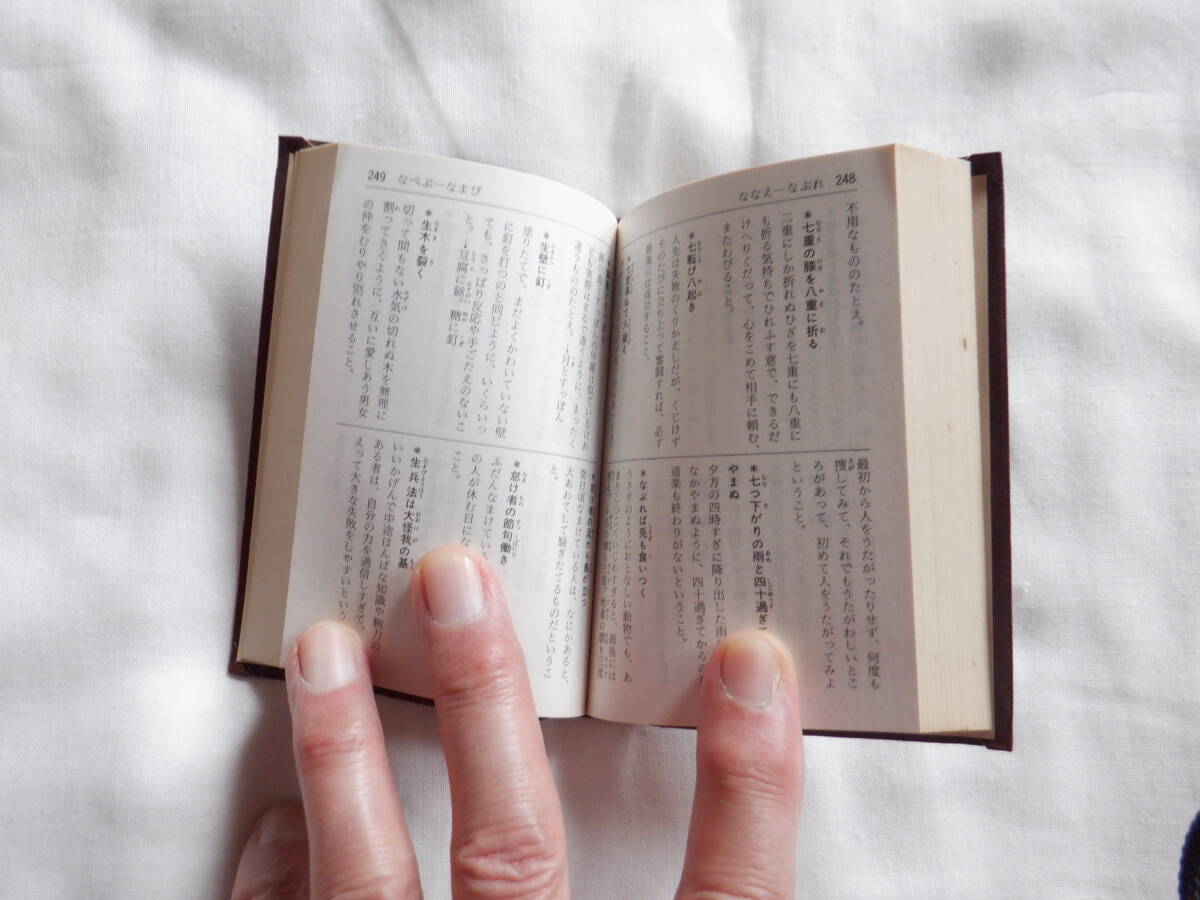 248
ななえ―なぶれ
不用なもののたとえ。
*七重の膝を八重に折る
二重にしか折れぬひざを七重にも八重に
も折る気持ちでひれふす意で、できるだ
けへりくだって、心をこめて相手に頼む、
またわびること。
*七転び八起き
人生は失敗のくりかえしだが、くじけず
そのたびに立ち上って奮闘すれば、必ず
最後には成功すること。
最初から人をうたがったりせず、何度も
捜してみて、それでもうたがわしいとこ
ろがあって、初めて人をうたがってみよ
ということ。
*七つ下がりの雨と四十過ぎて
やまぬ
夕方の四時すぎに降り出した雨
なかやまぬように、四十過ぎてからの
道楽も終わりがないということ。
*なぶれば兎も食いつく
うさぎのようにおとなしい動物でも、あ
まりしつこくいじめすぎると、最後には
249
なべぶ―なまび
違うもののたとえ。→月とすっぽん
*生壁に釘
塗りたてで、まだよくかわいていない壁
に釘を打つのと同じように、いくらいっ
ても、さっぱり反応や手ごたえのないこ
と。→豆腐に鎹、糠に釘
*生木を裂く
切って間もない水気の切れぬ木を無理に
割ってさくように、互いに愛しあう男女
の仲をむりやり別れさせること。
常日頃なまけている人は、なにかあると、
大あわてして騒ぎたてるものだというこ
と。
*怠け者の節句働き
ふだんなまけてい
の人が休む日にな
こと。
*生兵法は大怪我の基
いいかげんで中途はんぱな知識や腕力の
ある者は、自分の力を過信しすぎて、
えって大きな失敗をしやすいという